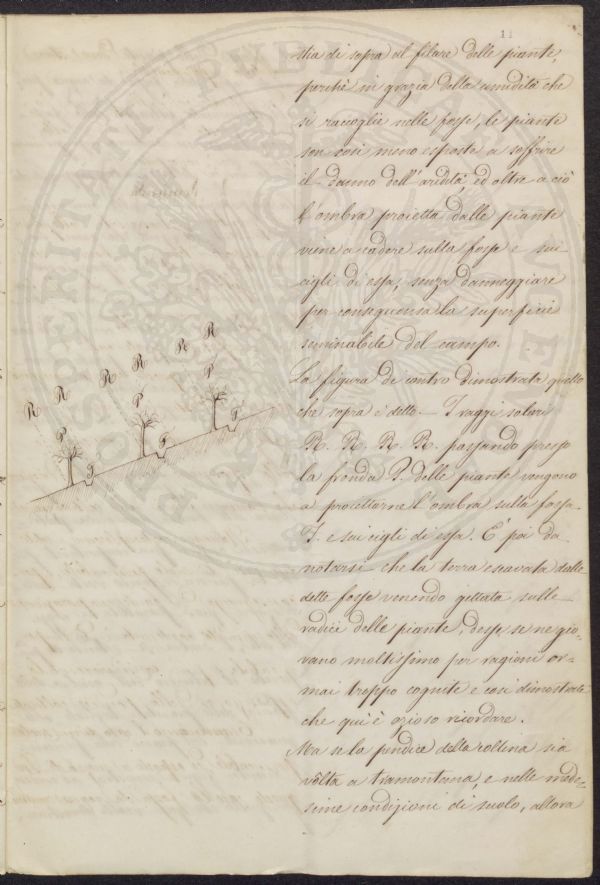 11
stia di sopra al filare delle piante,
perchè in grazia della umidità che
si raccoglie nelle fosse, le piante
son così meno esposte a soffrire
il danno dell'aridità, ed oltre a ciò
l'ombra proietta dalle piante
viene a cadere sulla fossa e sui
cigli di essa, senza danneggiare
per conseguenza la superficie
seminabile del campo.
La figura di contro dimostrata quello
che sopra è detto. — I raggi solari
R. R. R. R. passando presso
la fronda P. delle piante vengono
a proiettarne l'ombra sulla fossa
F. e sui cigli di essa. È poi da
notarsi che la terra escavata dalle
dette fosse venendo gettata sulle
radici delle piante, desse se ne gio-
vano moltissimo per ragioni or-
mai troppo cognite e così dimostrate
che qui è ozioso ricordare.
Ma se la pendice della collina sia
vòlta a tramontana, e nelle mede-
sime condizioni di suolo, allora
R R R R R R
P P P
F F F
PROSPERITATI PUBLICAE